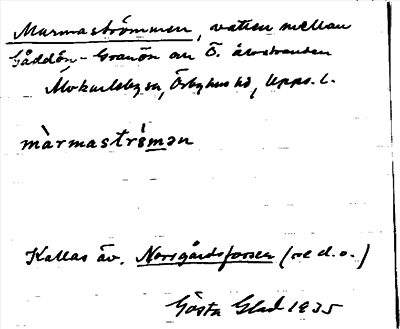 Marmaströmmen, vatten mellan
Gåddön - Granön o. Ö. älvstranden
Älvkarleby sn, Örbyhus hd, Upps. l.
màrmastrǿmən
Kallas äv. Norrgårdsforsen (se d. o.)
Gösta Glad 1935